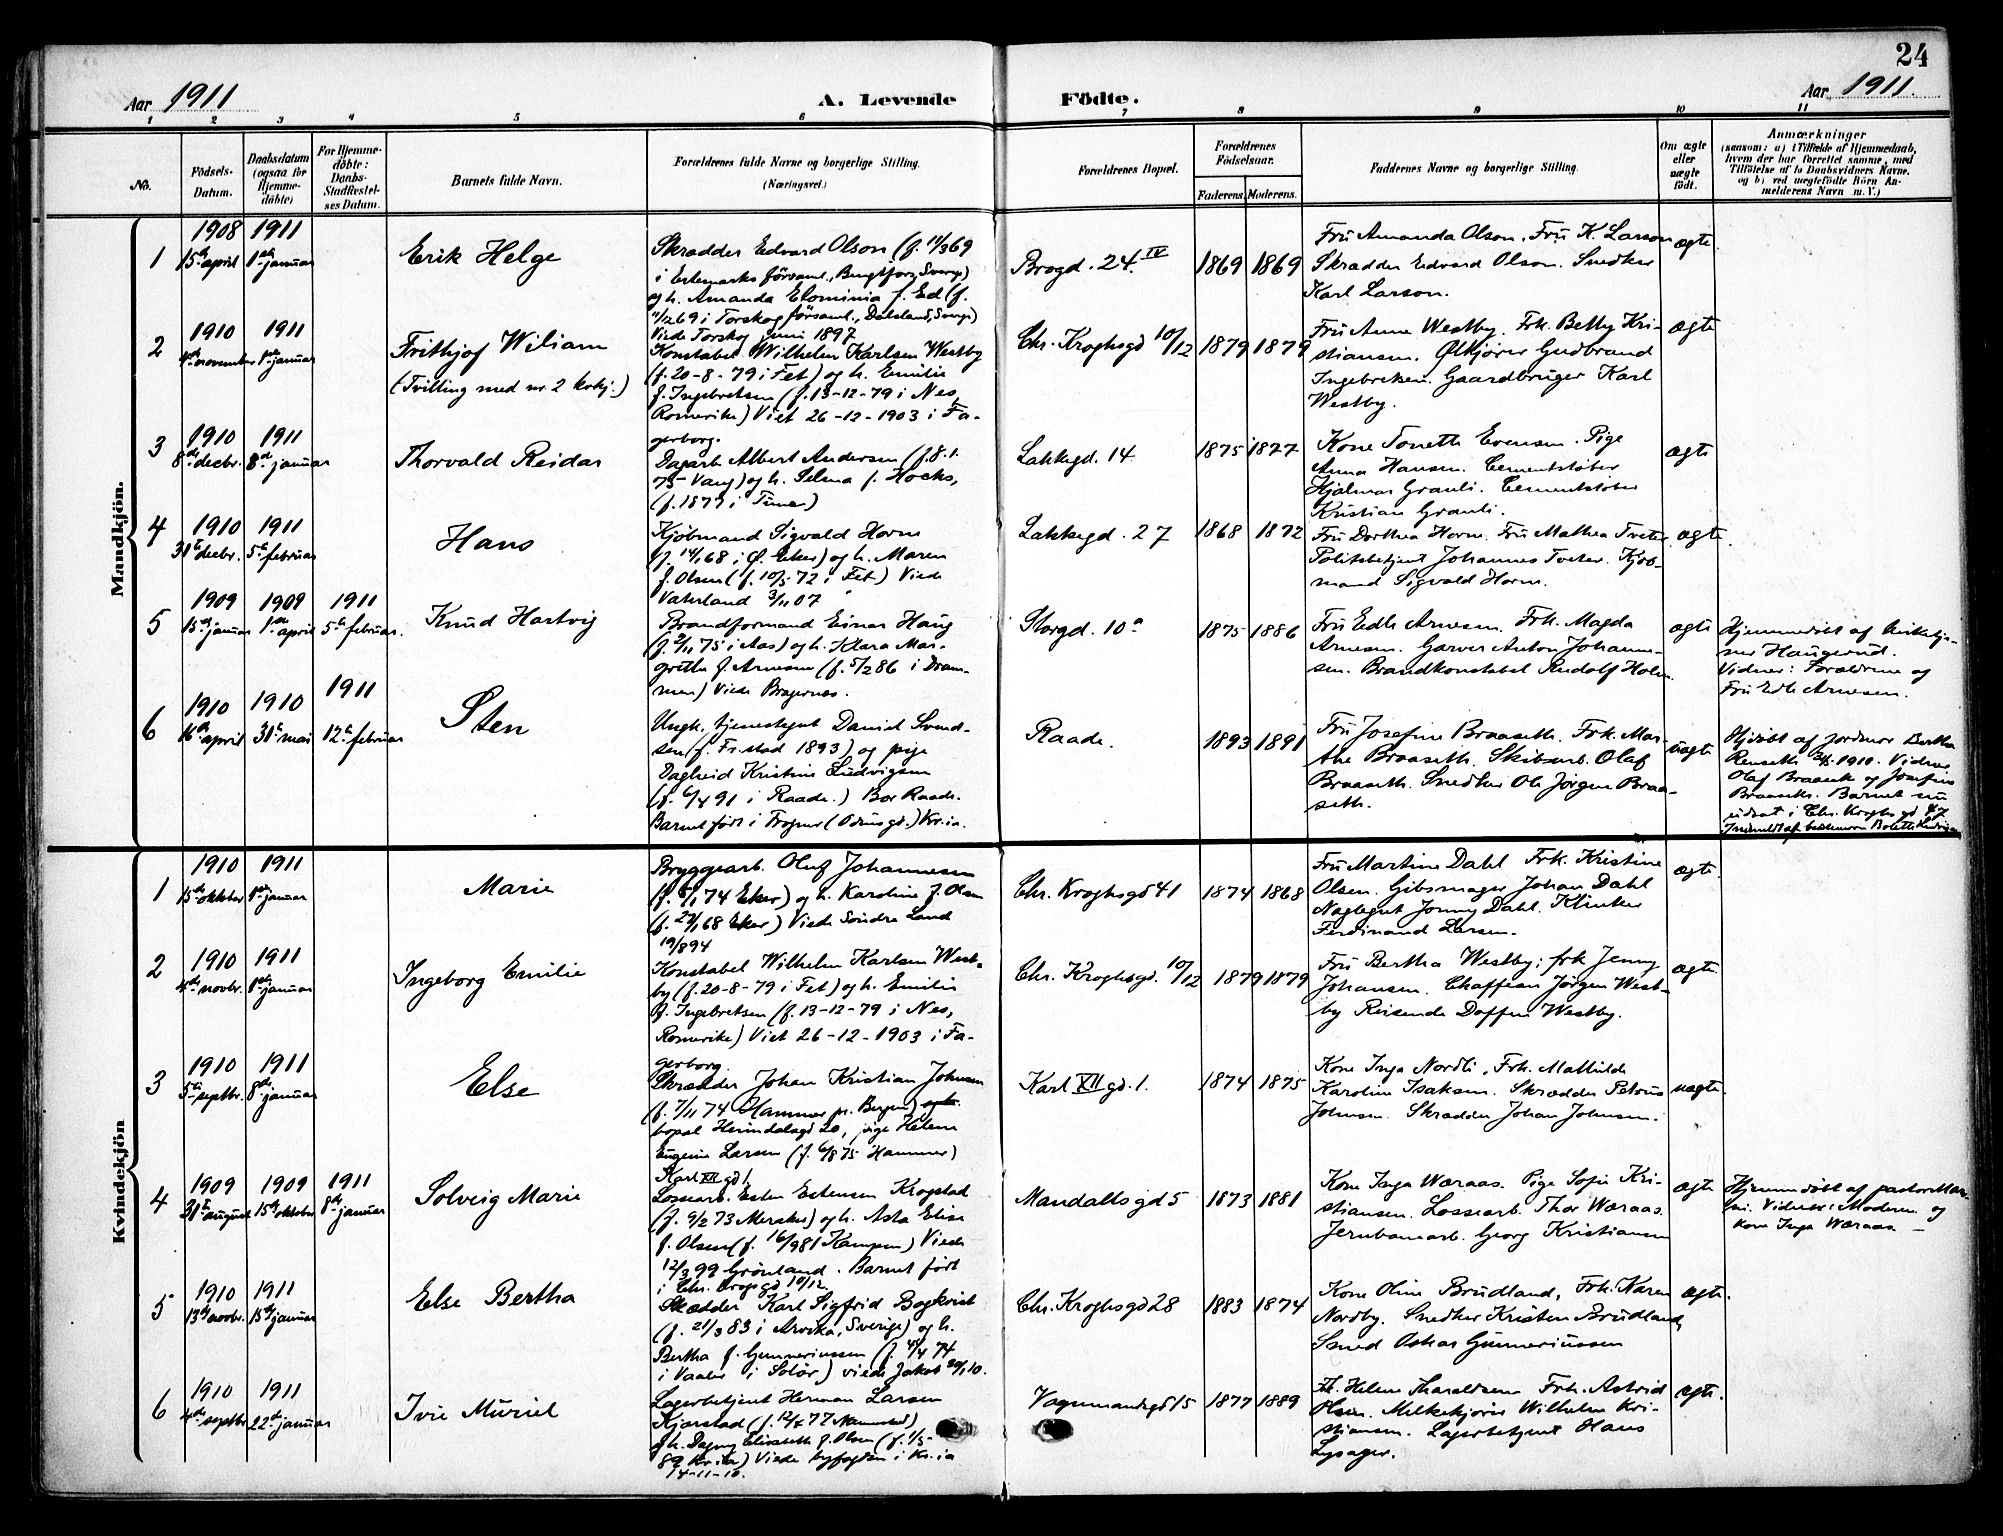 24
Aar 1911
A. Levende Födte.
Aar 1911.
1 2 3 4 5 6 7 8 9 10 11
No.
Födsels-Datum.
Daabsdatum (ogsaa for Hjemme-döbte)
For Hjemme-döbte: Daabs-Stadfæstel-ses Datum.
Barnets fulde Navn.
Forældrenes fulde Navne og borgerlige Stilling. (Næringsvei.)
Forældrenes Bopæl.
Forældrenes Födselsaar.
Faderens. Moderens.
Faddernes Navne og borgerlige Stilling.
Om ægte eller uægte födt.
Anmærkninger
(saasom: a) i Tilfælde af Hjemmedaab, hvem der har forrettet samme, med Tilföielse af to Daabsvidners Navne. og b) ved uægtefödte Börn An-melderens Navn m. V.)
Mandkjön.
1
1908 1911
15de april 1ste januar
Erik Helge
Skrædder Edvard Olson (f. 11/3 69
i Ertemarks församl., Bengtsfors, Sverige)
og h. Amanda f. Ed (f.
11/2 69 i Torskog församl., Dalsland, Sverige)
Viede Torskog juni 1897
Brogd. 24 IV
1869 1869
Fru Amanda Olson. Fru K. Larson
Skrædder Edvard Olson. Snedker
Karl Larson.
ægte
2
1910 1911
4de november 1ste januar
Frithjof Wiliam
(Tvilling med nr. 2 kvkj.)
Konstabel Wilhelm Karlsen Westby
(f. 20-8-79 i Fet) og h. Emilie
f. Ingebretsen (f. 13-12-79 i Nes,
Romerike) Viet 26-12-1903 i Fa-
gerborg.
Chr. Kroghsgd 10/12
1879 1879
Fru Anne Westby. Frk. Betty Kri-
stiansen. Ølkjører Gudbrand
Ingebretsen. Gaardbruger Karl
Westby.
ægte
3
1910 1911
8de decbr. 8de januar
Thorvald Reidar
Dagarb. Albert Andersen (f. 8.1.
75 Vang) og h. Selma f. Hocks,
(f. 1877 i )
Lakkegd. 14.
1875 1877
Kone Tonette Evensen. Pige
Anna Hansen. Cementstøber
Hjalmar Granli. Cementstøber
Kristian Granli.
ægte
4
1910 1911
31te decbr. 5te februar
Hans
Kjøbmand Sigvald Horne
(f. 14/1 68 i Ø. Eker) og h. Maren
f. Olsen (f. 10/5 72 i Fet) Viede
Vaterland 3/11 07
Lakkegd. 27
1868 1872
Fru Dorthea Horne. Fru Mathea Tveter.
Politibetjent Johannes Tveter. Kjøb-
mand Sigvald Horne.
ægte.
5
1909 1909 1911
15de januar 1ste april 5te februar.
Knud Hartvig
Brandformand Einar Haug
(f. 2/11 75 i Aas) og h. Klara Mar-
grethe f. Arnesen (f. 5/2 86 i Dram-
men) Viede Bragernes.
Storgd. 10a
1875 1886
Fru Edle Arnesen. Frk. Magda
Arnesen. Garver Anton Johanne-
sen. Brandkonstabel Rudolf Holm.
ægte
Hjemmedøbt af kirketje-
ner Haugerud.
Vidner: Forældrene og
Fru Edle Arnesen.
6
1910 1910 1911
16de april 31te mai 12te februar
Sten
Ungk. tjenestegut Daniel Svend-
sen (f. Fr.stad 1893) og pige
Dagheid Kristine Ludvigsen
(f. 6/4 91 i Raade.) Bor Raade.
Barnet født i Frogner (Odinsgd.) Kr.ia.
Raade.
1893 1891
Fru Josefine Braaseth. Frk. Mar-
the Braaseth. Skibsarb. Olaf
Braaseth. Snedker Ole Jørgen Braa-
seth.
uægte
Hjdøbt af jordmor Bertha
Renseth 1910. Vidner
Olaf Braaseth og Josefine
Braaseth. Barnet nu
i Chr. Kroghs gd 47
Kvindekjön
1
1910 1911
15de oktober 1ste januar
Marie
Bryggearb. Oluf Johannesen
(f. 5/1 74 Eker) og h. Karoline f. Olsen
(f. 27/1 68 Eker) Viede Søndre Land
19/8 94
Chr. Kroghsgd 41
1874 1868
Fru Martine Dahl Frk. Kristine
Olsen. Gibsmager Johan Dahl
Jonny Dahl. Klinker
Ferdinand Larsen.
ægte.
2
1910 1911
4de novbr. 1ste januar
Ingeborg Emilie
Konstabel Wilhelm Karlsen West-
by (f. 20-8-79 i Fet) og h. Emilie
f. Ingebretsen (f. 13-12-79 i Nes,
Romerike) Viet 26-12-1903 i Fa-
gerborg.
Chr. Kroghsgd. 10/12
1879 1879
Fru Bertha Westby; frk Jenny
Johansen. Chaffeur Jørgen West-
by Reisende Doffen Westby.
ægte
3
1910 1911
5te septbr. 8de januar
Else
Skrædder Johan Kristian Johnsen
(f. 7/11 74 Hammer pr. Bergen)
bopæl Heimdalsgd 20, pige Helene
Eugenie Larsen (f. 6/8 75 Hammer)
Karl XII gd 1
Karl XII gd. 1.
1874 1875
Kone Inga Nordli, Frk. Mathilde
Karoline Isaksen. Skrædder Petrus
Johnsen. Skrædder Johan Johnsen.
uægte.
4
1909 1909 1911
31te august 15de oktober 8de januar
Solveig Marie
Lossearb. Esten Estensen Krogstad
(f. 9/2 73 Meraker) og h. Asta Elise
f. Olsen (f. 16/9 81 Kampen) Viede
12/3 99 Grønland. Barnet født
i Chr. Krogsgd 10/12
Mandallsgd 5
1873 1881
Kone Inga Wæraas. Pige Sofie Kri-
stiansen. Lossearb. Thor Wæraas.
Jernbanearb. Georg Kristiansen
ægte
Hjemmedøbt af pastor Mar-
Vidner: Moderen og
kone Inga Wæraas
5
1910 1911
13de novbr. 15de januar
Else Bertha
Skrædder Karl Sigfrid Bogkvist
(f. 21/3 83 i Arvika, Sverige) og h.
Bertha f. Gunneriussen (f. 4/4 74
i Vaaler i Solør) viede Jakob 20/1 10.
Chr. Kroghsgd 28
1883 1874
Kone Oline Brudland, Frk. Karen
Nordby. Snedker Kristen Brudland,
Smed Oskar Gunneriussen
ægte.
6
1910 1911
4de septbr. 22de januar
Ivie Muriel
Lagerbetjent Herman Larsen
Kjærstad (f. 12/5 77 )
og h. Dagny Elisabeth f. Olsen (f. 1/5-
89 Kr.ia) Viede byfogden i Kr.ia
14-11-10.
Vognmandsgd 15
1877 1889
Fr. Helene Haraldsen Frk. Astrid
Olsen. Melkekjører Wilhelm Kri-
stiansen. Lagerbetjent Hans
Lysager.
ægte.